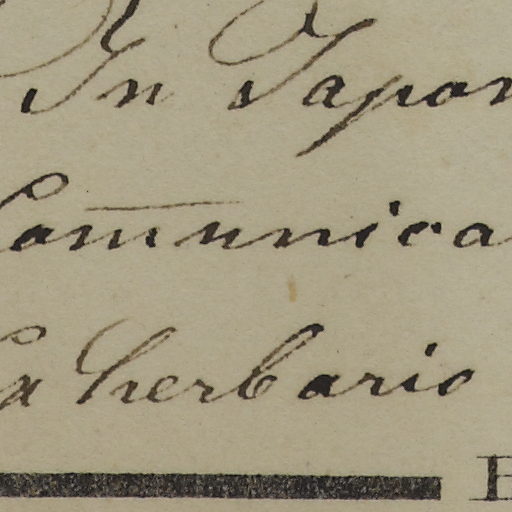 In Japon
Com̅unica
Ex herbario